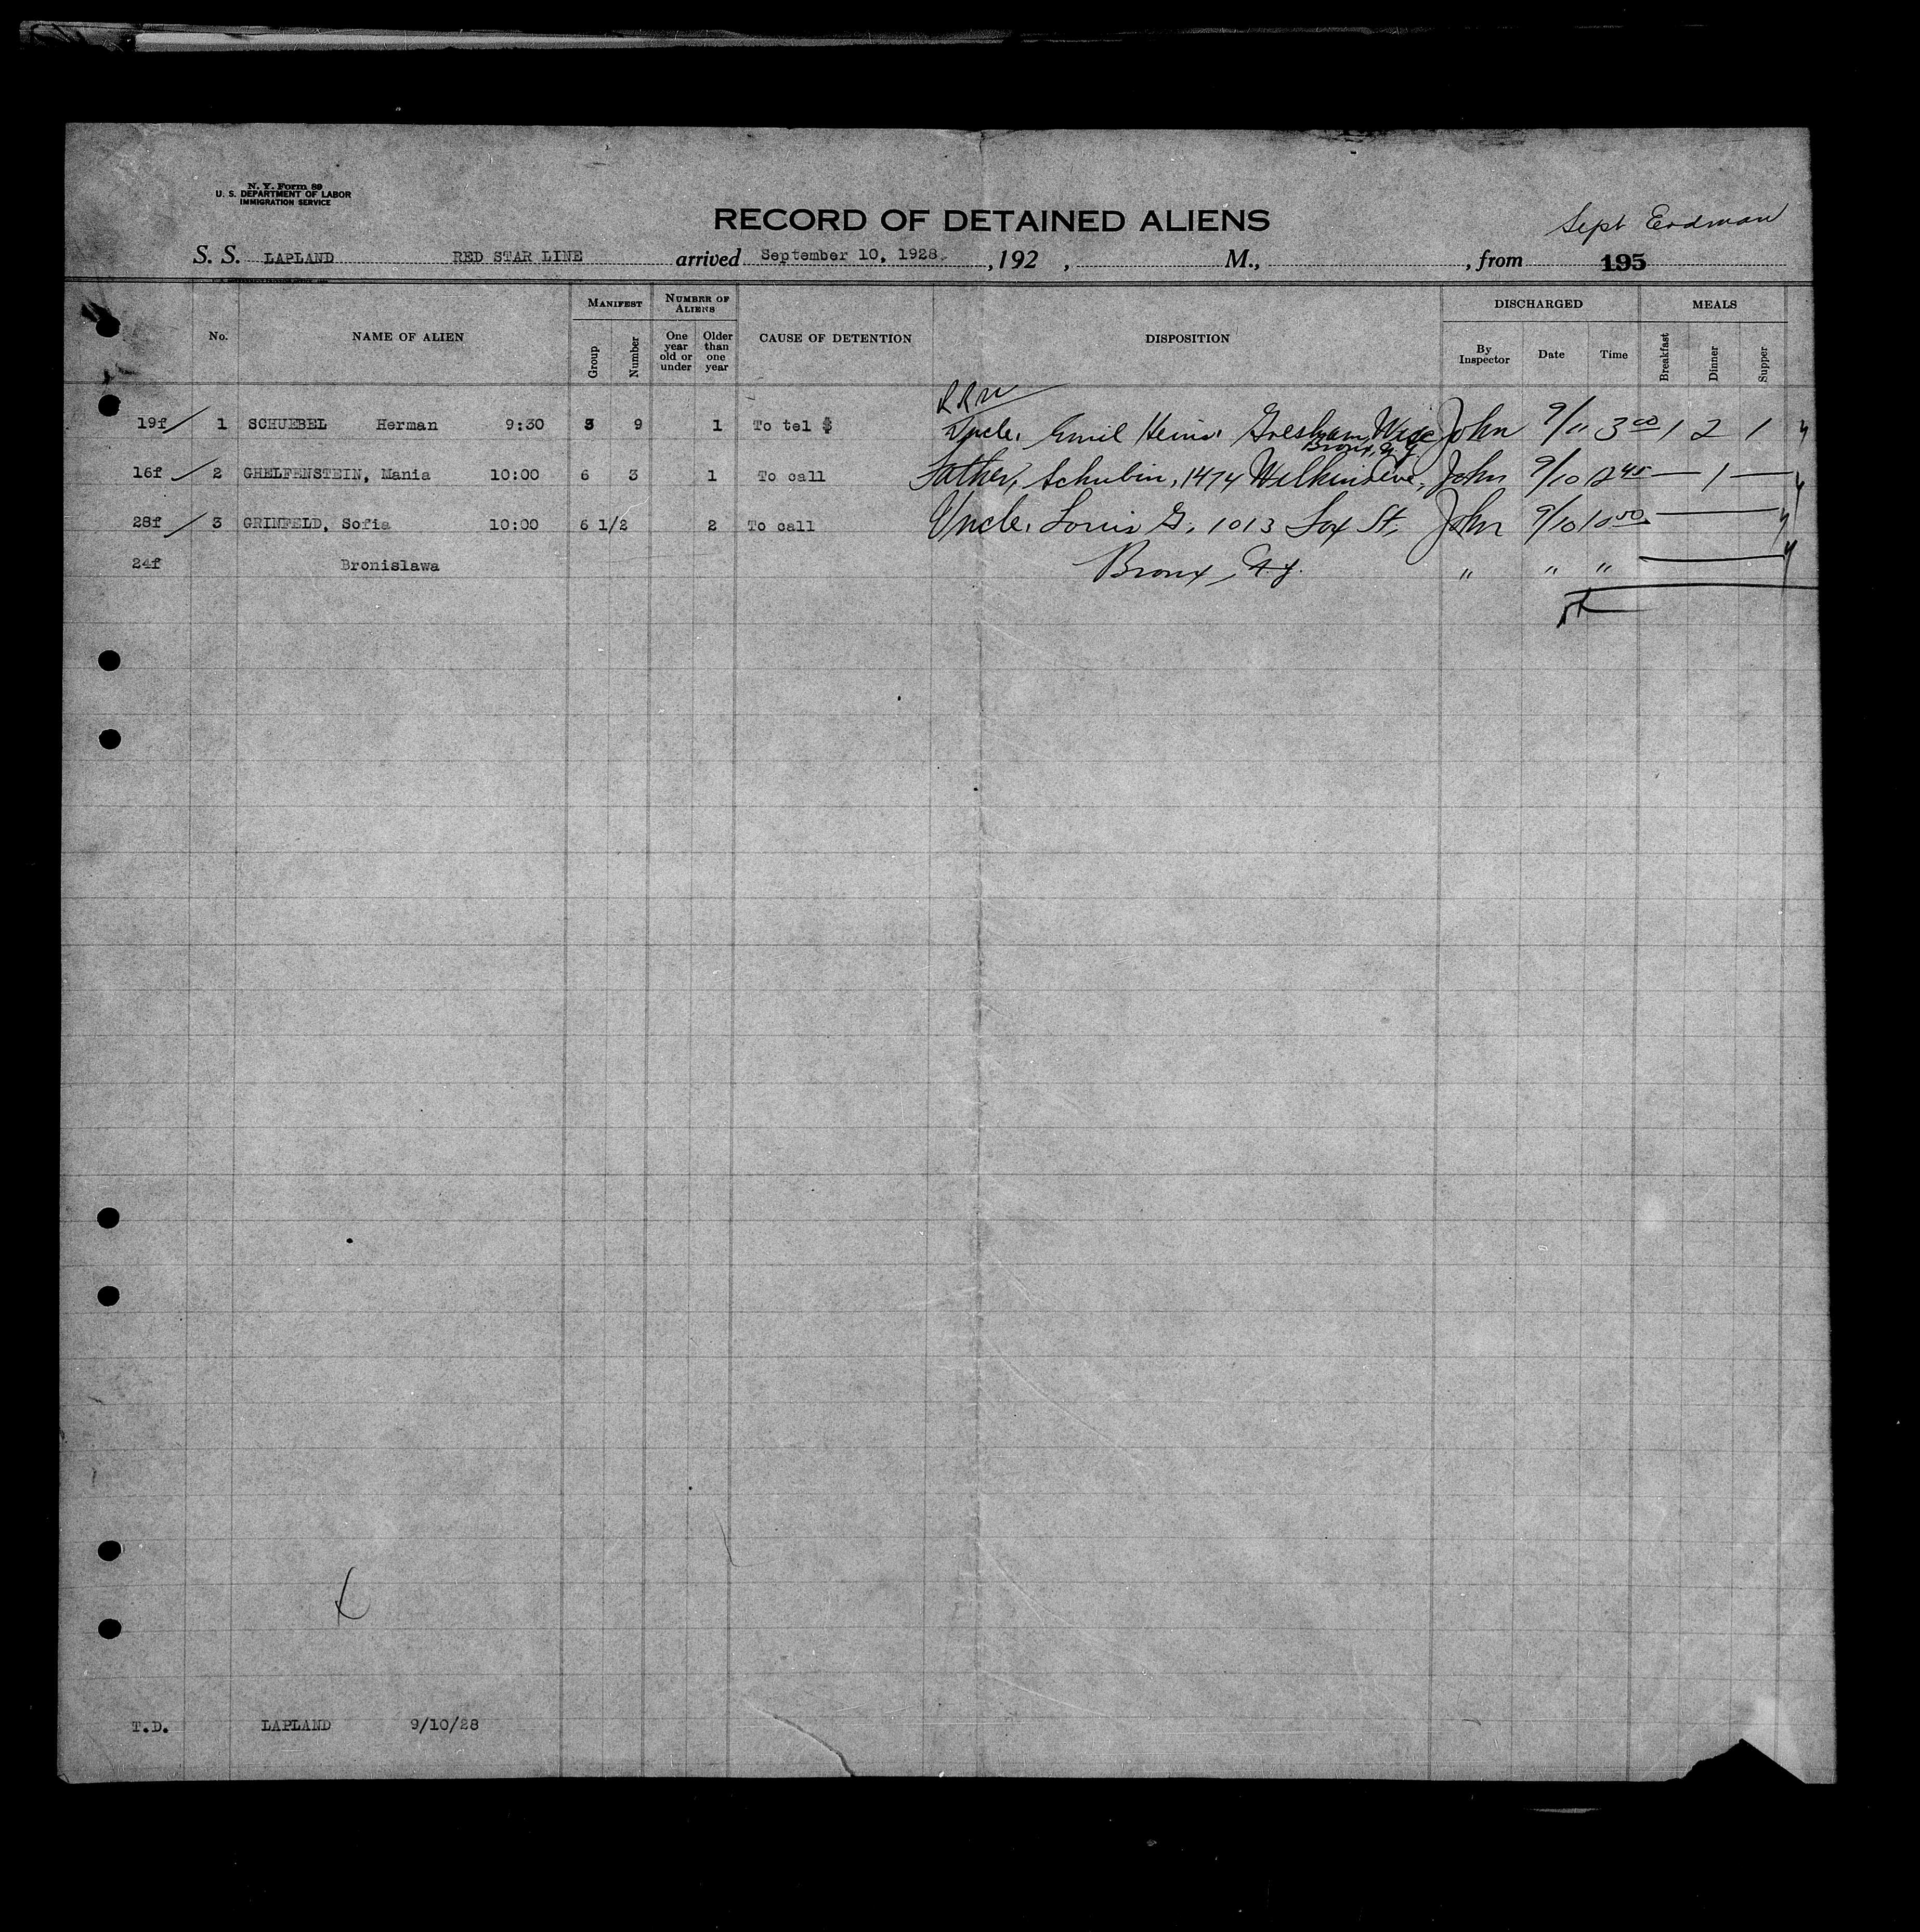 N. Y. Form 89
U. S. DEPARTMENT OF LABOR
IMMIGRATION SERVICE
RECORD OF DETAINED ALIENS
Sept Erdman
S. S. LAPLAND RED STAR LINE arrived September 10, 1928. , 192 , M., , from 195
No. NAME OF ALIEN MANIFEST Group Number NUMBER OF ALIENS One year old or under Older than one year CAUSE OF DETENTION DISPOSITION DISCHARGED By Inspector Date Time MEALS Breakfast Dinner Supper
RRW
19f / 1 SCHUEBEL Herman 9:30 3 9 1 To tel $ Uncle, Emil Heins. Gresham, Wisc John 9/11 3 00 1 2 1
Bronx, N.Y.
16f / 2 GHELFENSTEIN, Mania 10:00 6 3 1 To call Father, Schubin, 1474 Wilkins Ave, John 9/10 12 45 — 1 —
28f / 3 GRINFELD, Sofia 10:00 6 1/2 2 To call Uncle, Louis G, 1013 Fox St, John 9/10 —
24f Bronislawa Bronx, N.Y. " " " —
T.D. LAPLAND 9/10/28